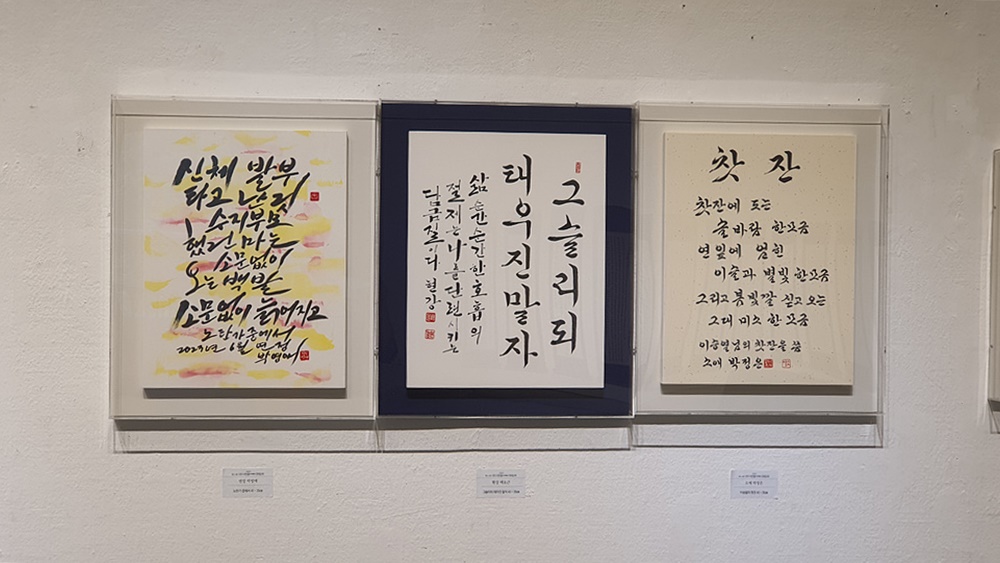 신체 발부
타고 난 것
수지부모
했던 마는
소문없이
오는 백발
소문없이 늙어지고
노탄가 중에서
2023년 6월 연정
박영애
그슬리되
태우진말자
삶 순간순간 한호흡의
절제는 나를 단련시키는
담금질이다 현강
찻 잔
찻잔에 뜨는
솔바람 한모금
연잎에 얹힌
이슬과 별빛 한모금
그리고 봄빛깔 싣고 오는
그대 미소 한모금
이승열님의 찻잔을 씀
소애 박정은